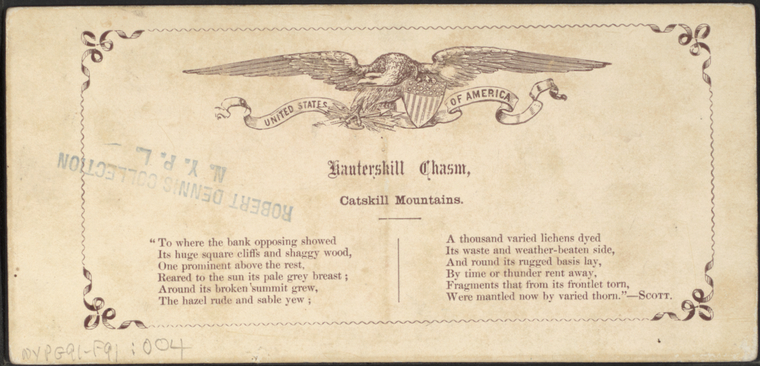 UNITED STATES OF AMERICA
Kauterskill Chasm,
Catskill Mountains.
ROBERT DENNIS COLLECTION
N. Y. P. L.
"To where the bank opposing showed
Its huge square cliffs and shaggy wood,
One prominent above the rest,
Reared to the sun its pale grey breast;
Around its broken summit grew,
The hazel rude and sable yew;
A thousand varied lichens dyed
Its waste and weather-beaten side,
And round its rugged basis lay,
By time or thunder rent away,
Fragments that from its frontlet torn,
Were mantled now by varied thorn."—SCOTT.
NYPG91-F91:004